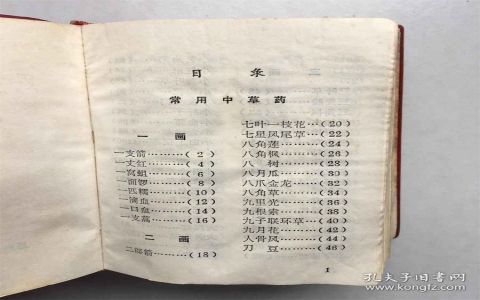 目录
常用中草药
一画
一支箭………(2)
一丈红………(4)
一窝蛆………(6)
一面锣………(8)
一匹绸………(10)
一滴血………(12)
一口血………(14)
一支蒿………(16)
二画
二郎箭………(18)
七叶一枝花…(20)
七星凤尾草…(22)
八角莲………(24)
八角枫………(26)
八树………(28)
八月瓜………(30)
八爪金龙……(32)
八角草………(34)
九里光………(36)
九根索………(38)
九子联环草…(40)
九月花………(42)
人骨风………(44)
刀豆………(46)
1
孔夫子旧书网